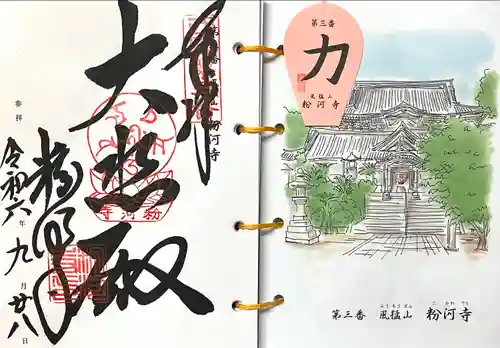 第三番 風猛山 粉河寺
大悲殿
粉河寺
粉河寺
参拝
令和六年九月廿八日
第三番
力
風猛山
粉河寺
ふうもうざん
こかわでら
第三番 風猛山 粉河寺